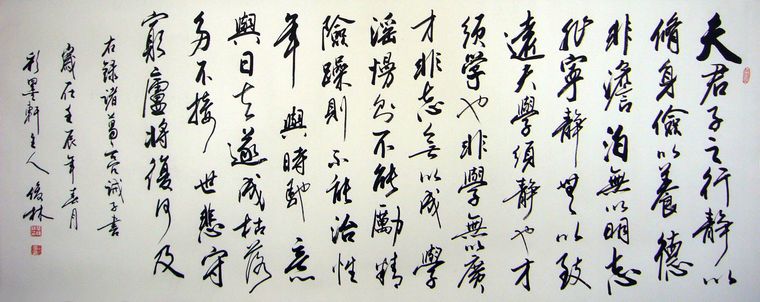 夫君子之行靜以
脩身儉以養德
非澹泊無以明志
非寧靜無以致
遠夫學須靜也才
須學也非學無以廣
才非志無以成學
滛慢則不能勵精
險躁則不能治性
年與時馳意
與日去遂成枯落
多不接世悲守
窮廬將復何及
右録諸葛亮誡子書
歲在壬辰年春月
彩墨軒主人俊林